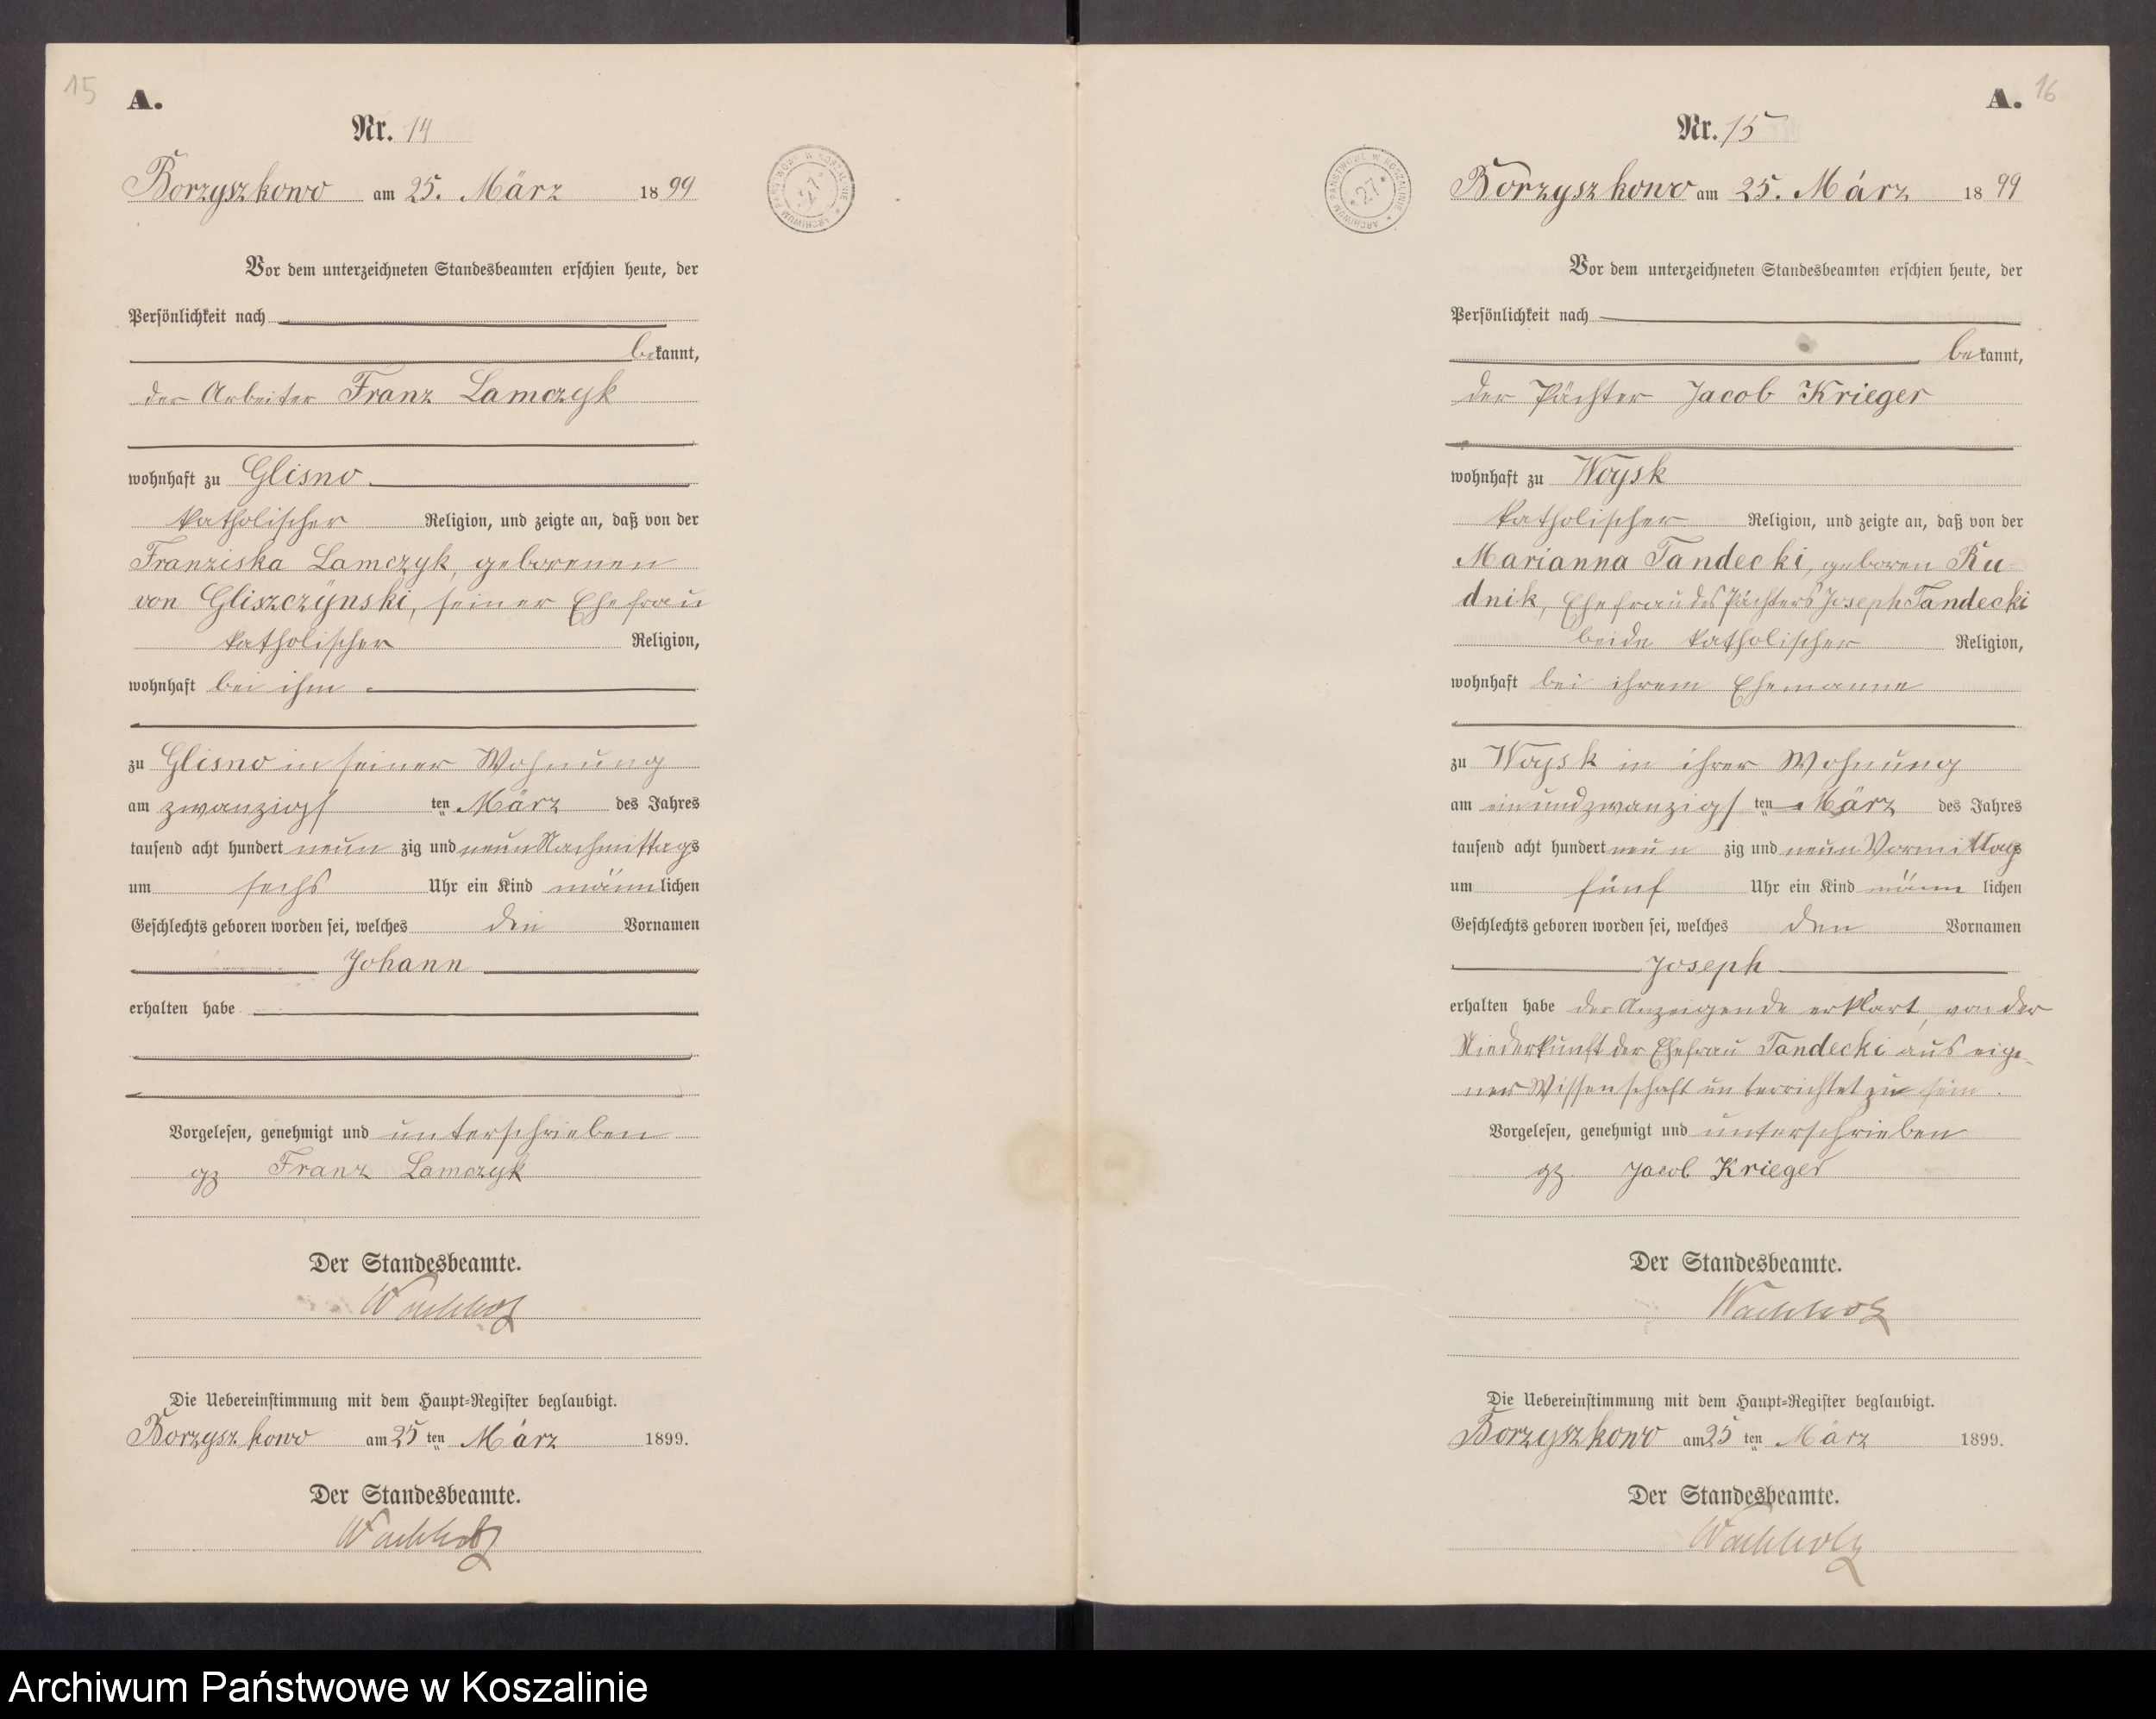 15
A.
Nr. 14
Borzyszkowo am 25. März 1899
ARCHIWUM PAŃSTWOWE W KOSZALINIE * 27 *
Vor dem unterzeichneten Standesbeamten erschien heute, der
Persönlichkeit nach
bekannt,
der Arbeiter Franz Lamczyk
wohnhaft zu Glisno
katholischer Religion, und zeigte an, daß von der
Franziska Lamczyk, geborenen
von Gliszczynski, seiner Ehefrau
katholischer Religion,
wohnhaft bei ihm
zu Glisno in seiner Wohnung
am zwanzigsten März des Jahres
tausend acht hundert neunzig und neun Nachmittags
um sechs Uhr ein Kind männlichen
Geschlechts geboren worden sei, welches den Vornamen
Johann
erhalten habe
Vorgelesen, genehmigt und unterschrieben
gz Franz Lamczyk
Der Standesbeamte.
Wachholz
Die Uebereinstimmung mit dem Haupt-Register beglaubigt.
Borzyszkowo am 25 ten März 1899.
Der Standesbeamte.
Wachholz
16
A.
Nr. 15
Borzyszkowo am 25. März 1899
ARCHIWUM PAŃSTWOWE W KOSZALINIE * 27 *
Vor dem unterzeichneten Standesbeamten erschien heute, der
Persönlichkeit nach
bekannt,
der Pächter Jacob Krieger
wohnhaft zu Woysk
katholischer Religion, und zeigte an, daß von der
Marianna Tandecki, geboren Ru-
dnik, Ehefrau des Pächters Joseph Tandecki
beide katholischer Religion,
wohnhaft bei ihrem Ehemanne
zu Woysk in ihrer Wohnung
am einundzwanzigsten März des Jahres
tausend acht hundert neunzig und neun Vormittags
um fünf Uhr ein Kind männlichen
Geschlechts geboren worden sei, welches den Vornamen
Joseph
erhalten habe der Anzeigende erklärt, von der
Niederkunft der Ehefrau Tandecki aus eige-
ner Wissenschaft unterrichtet zu sein.
Vorgelesen, genehmigt und unterschrieben
gz. Jacob Krieger
Der Standesbeamte.
Wachholz
Die Uebereinstimmung mit dem Haupt-Register beglaubigt.
Borzyszkowo am 25 ten März 1899.
Der Standesbeamte.
Wachholz
Archiwum Państwowe w Koszalinie